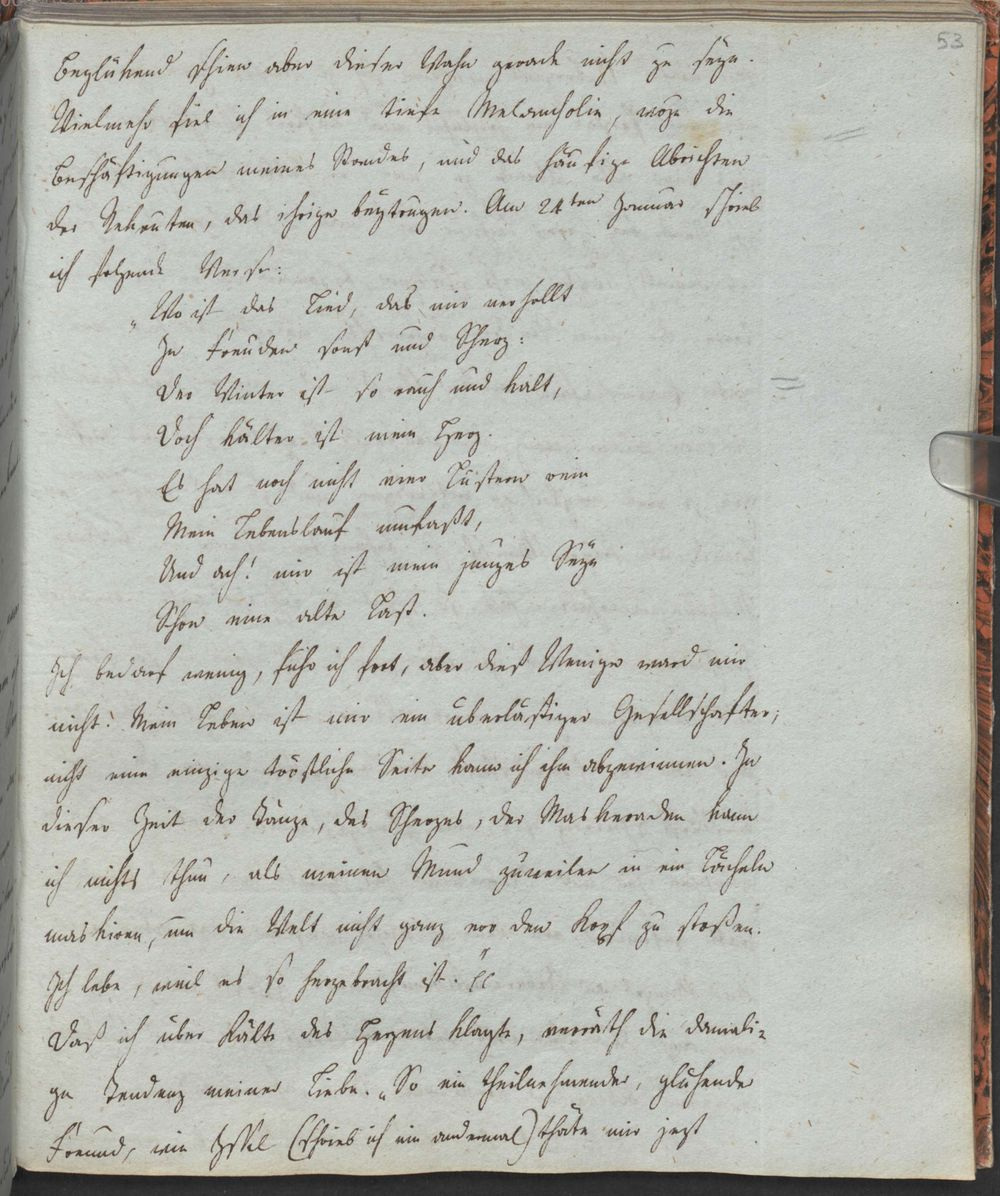 53
Beglükend schien aber dieser Wahn gerade nicht zu seyn.
Vielmehr fiel ich in eine tiefe Melancholie, wozu die
Beschäftigungen meines Standes, und das häufige Abrichten
der Rekruten, das ihrige beytrugen. Am 24ten Januar schrieb
ich folgende Verse:
„Wo ist das Lied, das mir verhallt
In Freuden sonst und Scherz:
Der Winter ist so rauh und kalt,
Doch kälter ist mein Herz.
Es hat noch nicht vier Lustern rein
Mein Lebenslauf umfaßt,
Und ach! mir ist mein junges Seyn
Schon eine alte Last.
Ich bedarf wenig, fuhr ich fort, aber dieß Wenige ward mir
nicht. Mein Leben ist mir ein überlästiger Gesellschafter;
nicht eine einzige tröstliche Seite kann ich ihm abgewinnen. In
dieser Zeit der Tänze, des Scherzes, der Maskeraden kann
ich nichts thun, als meinen Mund zuweilen in ein Lächeln
maskiren, um die Welt nicht ganz vor den Kopf zu stoßen.
Ich lebe, weil es so hergebracht ist."
Daß ich über Kälte des Herzens klagte, verräth die damali-
ge Tendenz meiner Liebe. „So ein theilnehmender, glühender
Freund, wie (schrieb ich ein andermal) thäte mir jezt